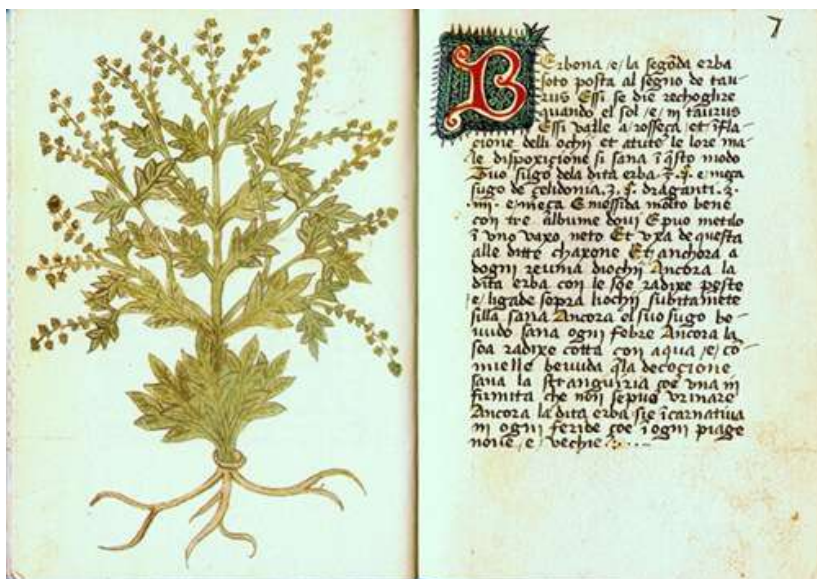 7
Berbona /e/ la segōda erba
soto posta al segno de tau-
rus Essi se die rechoglire
quando el sol /e/ in taurus
Essi valle a rosseça / et īfla-
cione delli ochii et atute le lore ma-
le dispoxicione si sana ī q̄sto modo
sugo dela dita erba e meça
sugo de celidonia, draganti.
.iiii. e meça E messida molto bene
con tre albume dovi E puo metilo
ī uno vaxo neto Et vxa de questa
alle ditte chaxone Et anchora a
dogni reuma diochi Ancora la
dita erba con le soe radixe peste
e/ ligade sopra liochii subitamēte
silla sana Ancora el suo sugo be-
uudo sana ogni febre Ancora la
soa radixe cotta con aqua /e/ cō
mielle beuuda q̄la decocione
sana la stranguiria çoe una in
firmita che non sepuo vrinare
Ancora la dita erba sie īcarnatiua
in ogni feride çoe ī ogni piage
noue /e/ vechie